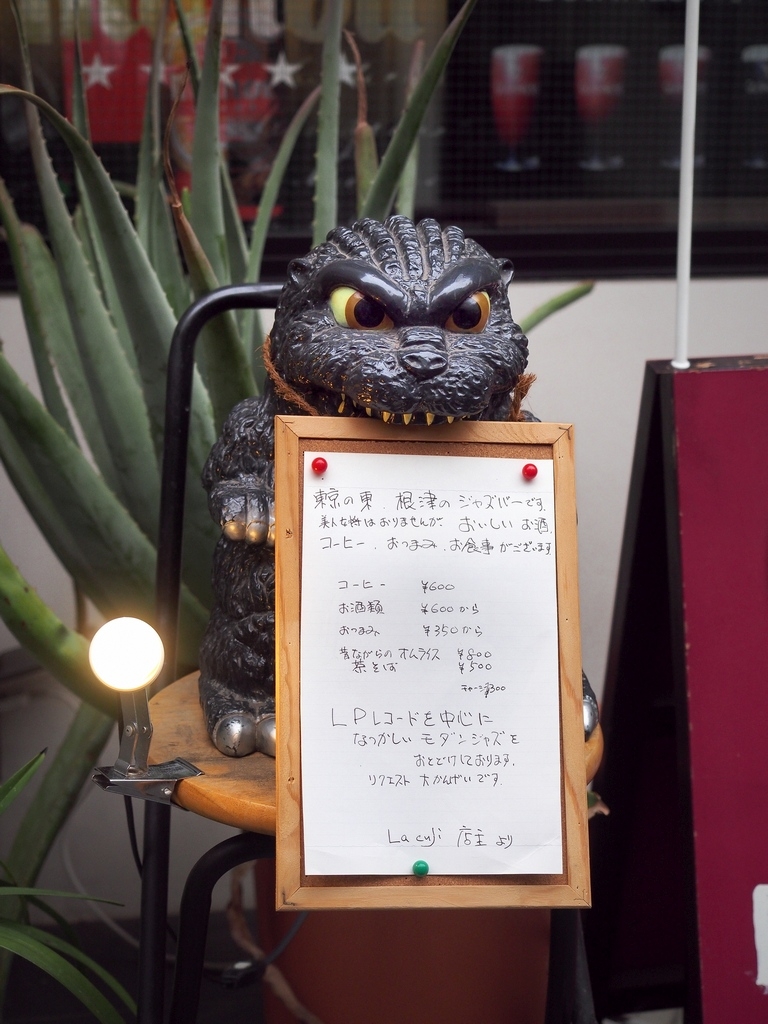 東京の東、根津のジャズバーです。
美人な姉はおりませんが、おいしいお酒、
コーヒー、おつまみ、お食事がございます
コーヒー ¥600
お酒類 ¥600から
おつまみ ¥350から
昔ながらのオムライス ¥800
茶そば ¥500
チャージ¥300
LPレコードを中心に
なつかしいモダンジャズを
おとどけしております。
リクエスト大かんげいです。
La cuji 店主より